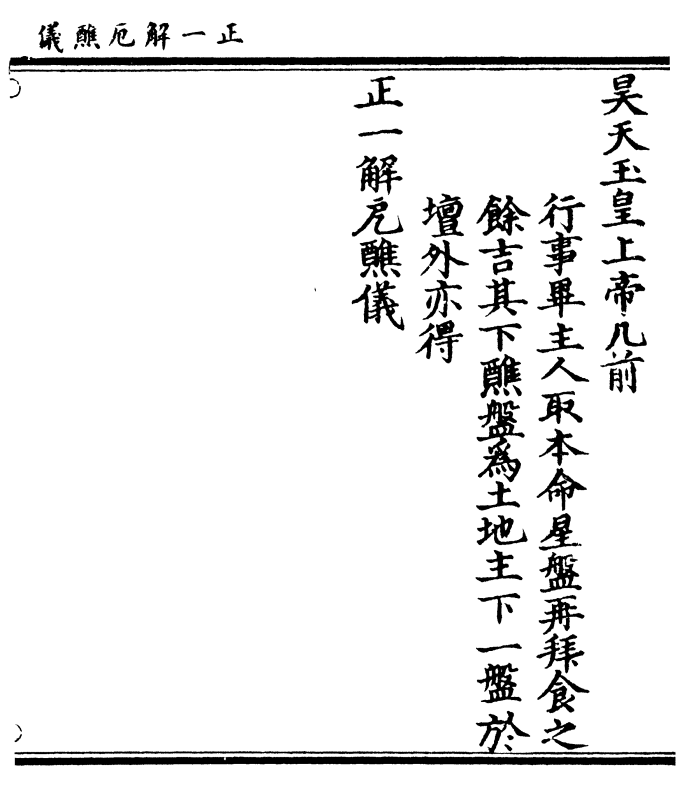 正一解厄醮儀
昊天玉皇上帝几前
行事畢主人取本命星盤再拜食之
餘吉其下醮盤為土地主下一盤於
壇外亦得
正一解厄醮儀